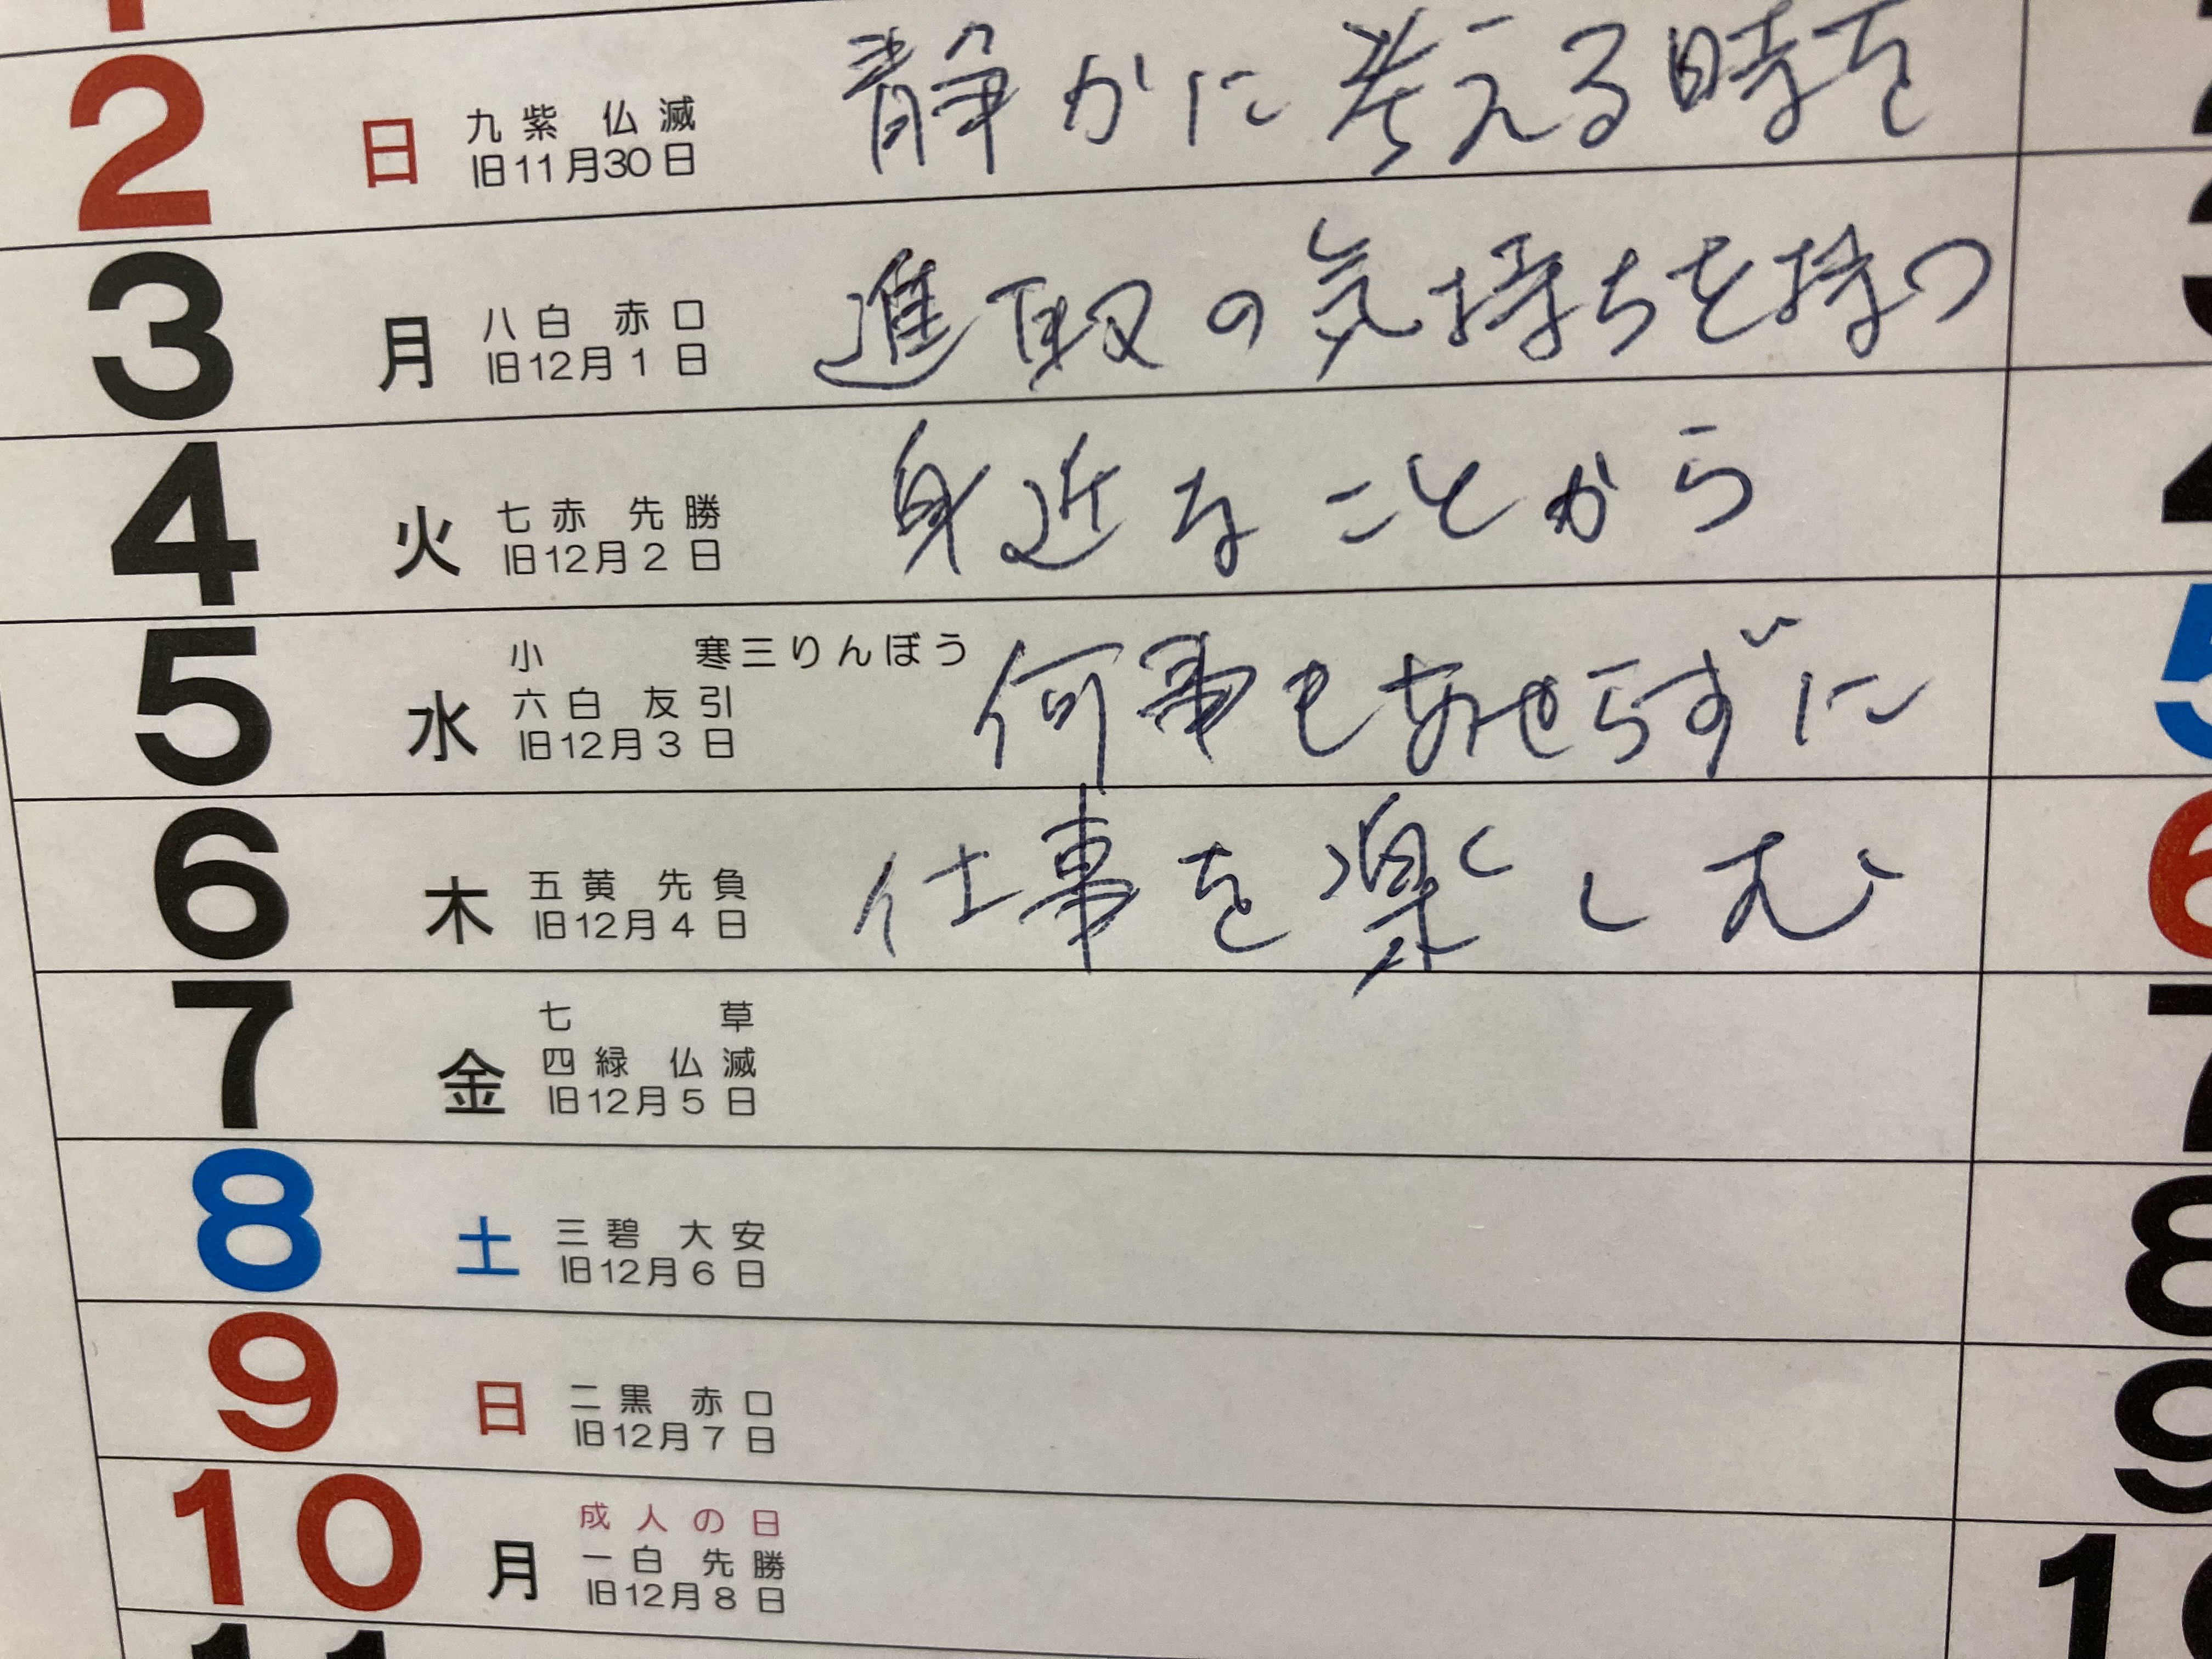 2 日 九紫 仏滅 静かに考える時を
旧11月30日
3 月 八白 赤口 進取の気持ちを持つ
旧12月1日
4 火 七赤 先勝 身近なことから
旧12月2日
小寒 三りんぼう
5 水 六白 友引 何事もあせらずに
旧12月3日
6 木 五黄 先負 仕事を楽しむ
旧12月4日
七草
7 金 四緑 仏滅
旧12月5日
8 土 三碧 大安
旧12月6日
9 日 二黒 赤口
旧12月7日
成人の日
10 月 一白 先勝
旧12月8日
11
5
6
7
8
9